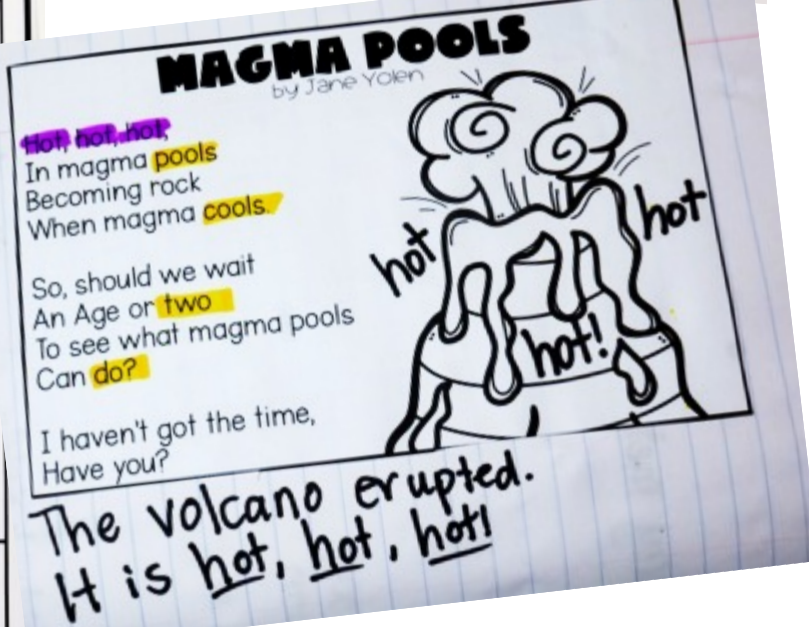 MAGMA POOLS
by Jane Yolen
Hot, hot, hot,
In magma pools
Becoming rock
When magma cools.
So, should we wait
An Age or two
To see what magma pools
Can do?
I haven't got the time,
Have you?
hot
hot
hot!
The volcano erupted.
It is hot, hot, hot!